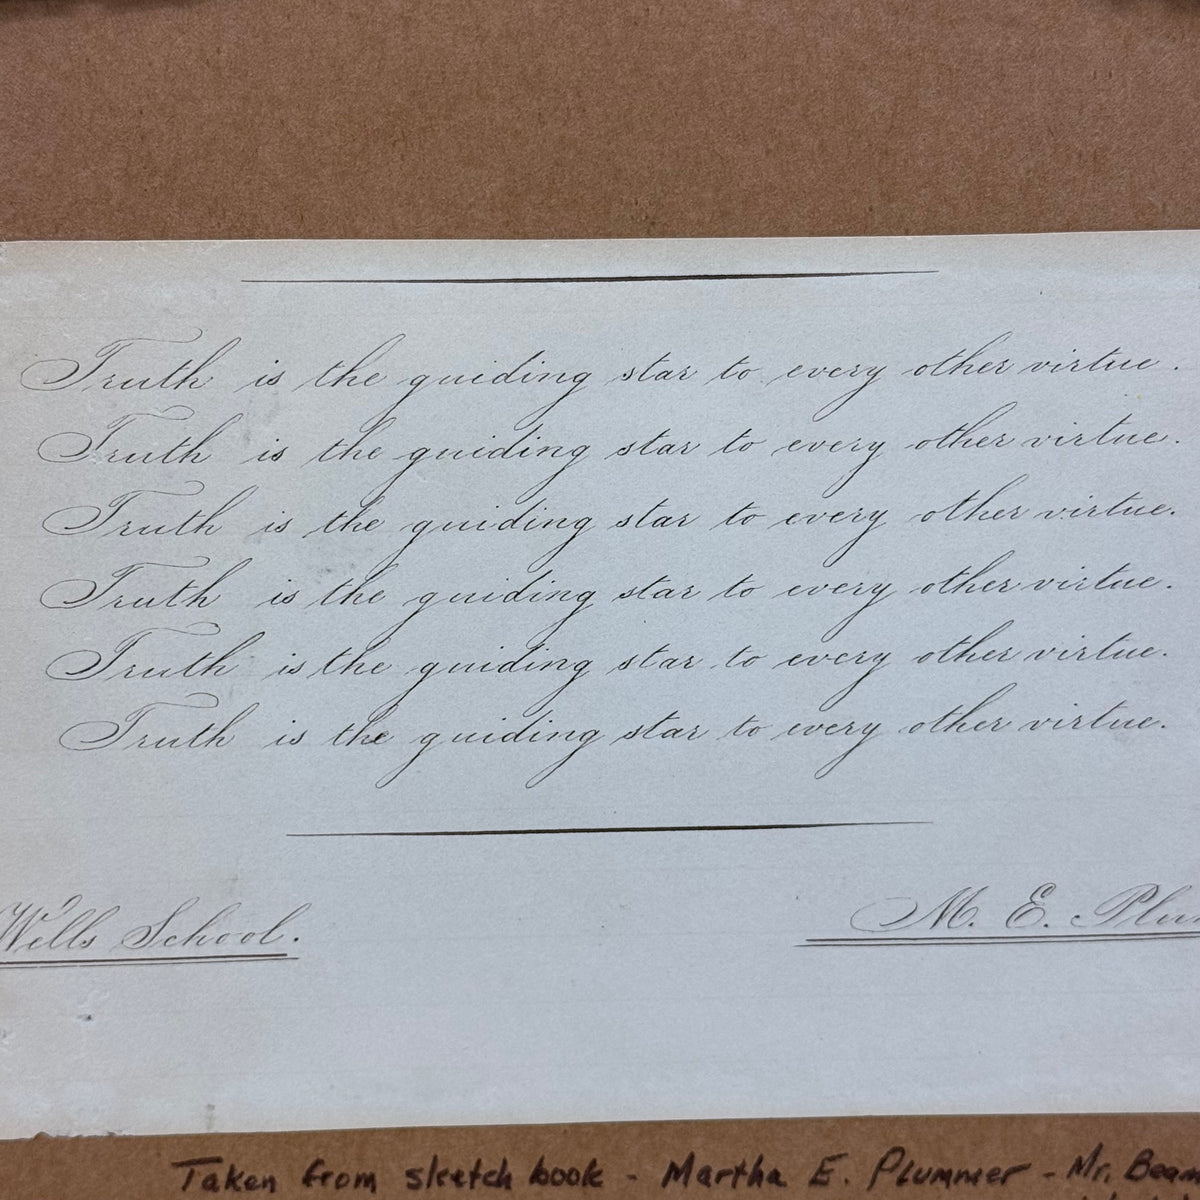 Truth is the guiding star to every other virtue.
Truth is the guiding star to every other virtue.
Truth is the guiding star to every other virtue.
Truth is the guiding star to every other virtue.
Truth is the guiding star to every other virtue.
Truth is the guiding star to every other virtue.
Wells School.
M. E. Plum
Taken from sketch book - Martha E. Plummer - Mr. Beam